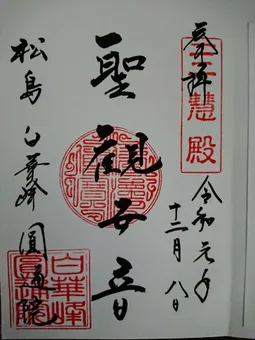 奉拝
三慧殿
令和元年
十二月八日
聖観世音
松島 白華峰 圓通院
白華峰
圓通院